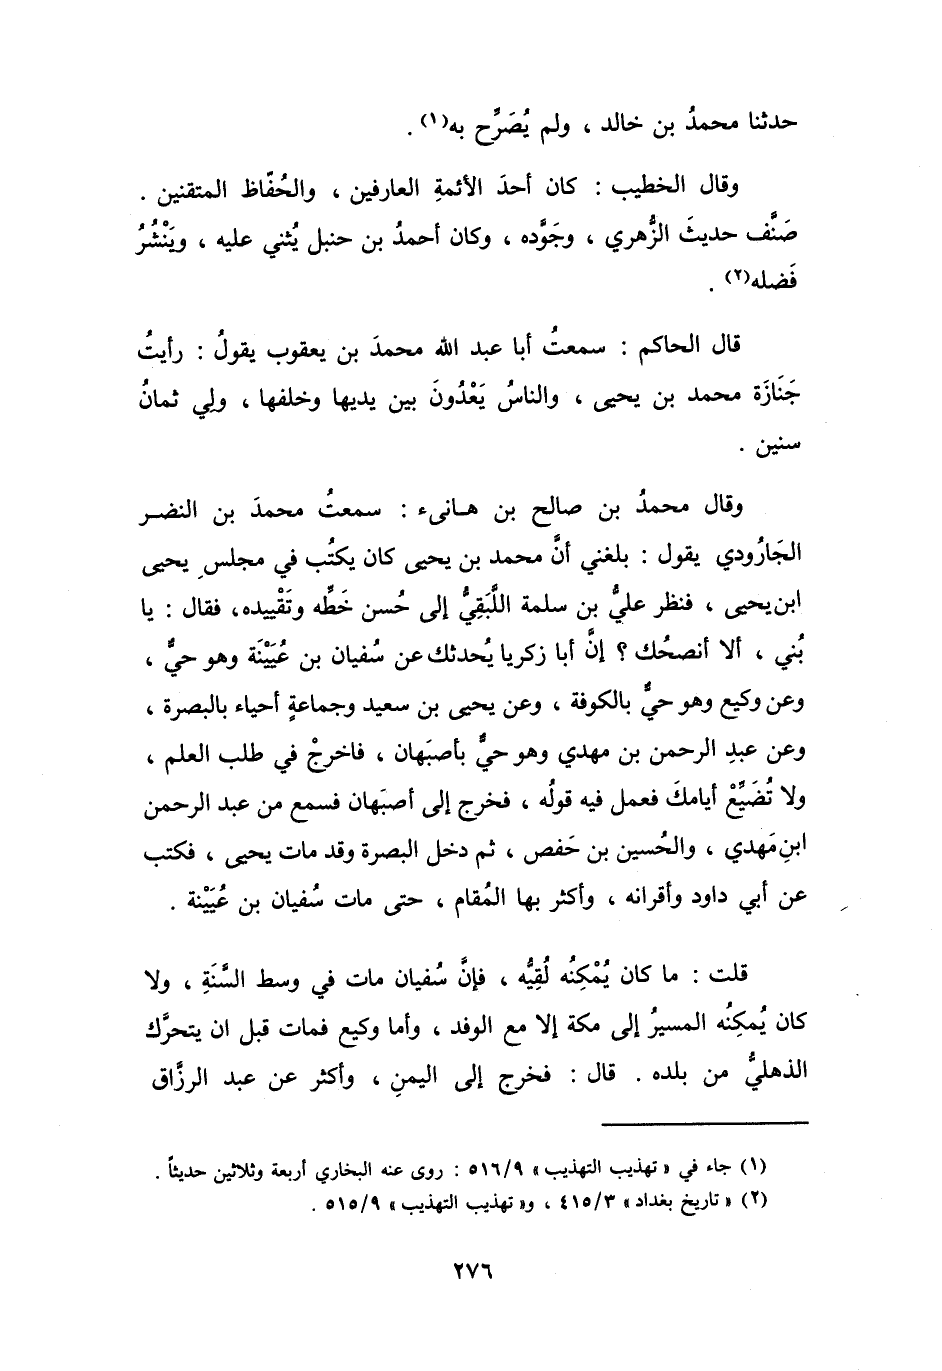 حدثنا محمدُ بن خالد ، ولم يُصَرِّح به(١) .
وقال الخطيب : كان أحدَ الأئمةِ العارفين ، والحُفّاظ المتقنين .
صَنَّف حديثَ الزُّهري ، وجَوَّده ، وكان أحمدُ بن حنبل يُثني عليه ، ويَنْشُرُ
فَضله(٢) .
قال الحاكم : سمعتُ أبا عبد الله محمدَ بن يعقوب يقولُ : رأيتُ
جَنَازَة محمد بن يحيى ، والناسُ يَعْدُونَ بين يديها وخلفها ، ولِي ثمانُ
سنين .
وقال محمدُ بن صالح بن هـانىء : سمعتُ محمدَ بن النضـر
الجَارُودي يقول : بلغني أنَّ محمد بن يحيى كان يكتُب في مجلسِ يحيى
ابن يحيى ، فنظر عليُّ بن سلمة اللَّبَقِيُّ إلى حُسن خَطِّه وتَقْييده، فقال : يا
بُني ، ألا أنصحُك ؟ إنَّ أبا زكريا يُحدثك عن سُفيان بن عُيَيْنَة وهو حيٌّ ،
وعن وكيع وهو حيٌّ بالكوفة ، وعن يحيى بن سعيد وجماعةٍ أحياء بالبصرة ،
وعن عبدِ الرحمن بن مهدي وهو حيٌّ بأصبَهان ، فاخرجْ في طلب العلم ،
ولا تُضَيِّعْ أيامكَ فعمل فيه قولُه ، فخرج إلى أصبَهان فسمع من عبد الرحمن
ابنِ مَهدي ، والحُسين بن حَفص ، ثم دخل البصرة وقد مات يحيى ، فكتب
عن أبي داود وأقرانه ، وأكثر بها المُقام ، حتى مات سُفيان بن عُيَيْنة .
قلت : ما كان يُمْكِنُه لُقِيُّه ، فإنَّ سُفيان مات في وسط السَّنَةِ ، ولا
كان يُمكِنُه المسيرُ إلى مكة إلا مع الوفد ، وأما وكيع فمات قبل ان يتحرَّك
الذهليُّ من بلده . قال : فخرج إلى اليمنِ ، وأكثر عن عبد الرزَّاق
(١) جاء في « تهذيب التهذيب » ٥١٦/٩ : روى عنه البخاري أربعة وثلاثين حديثاً .
(٢) « تاريخ بغداد » ٤١٥/٣ ، و« تهذيب التهذيب » ٥١٥/٩ .
٢٧٦